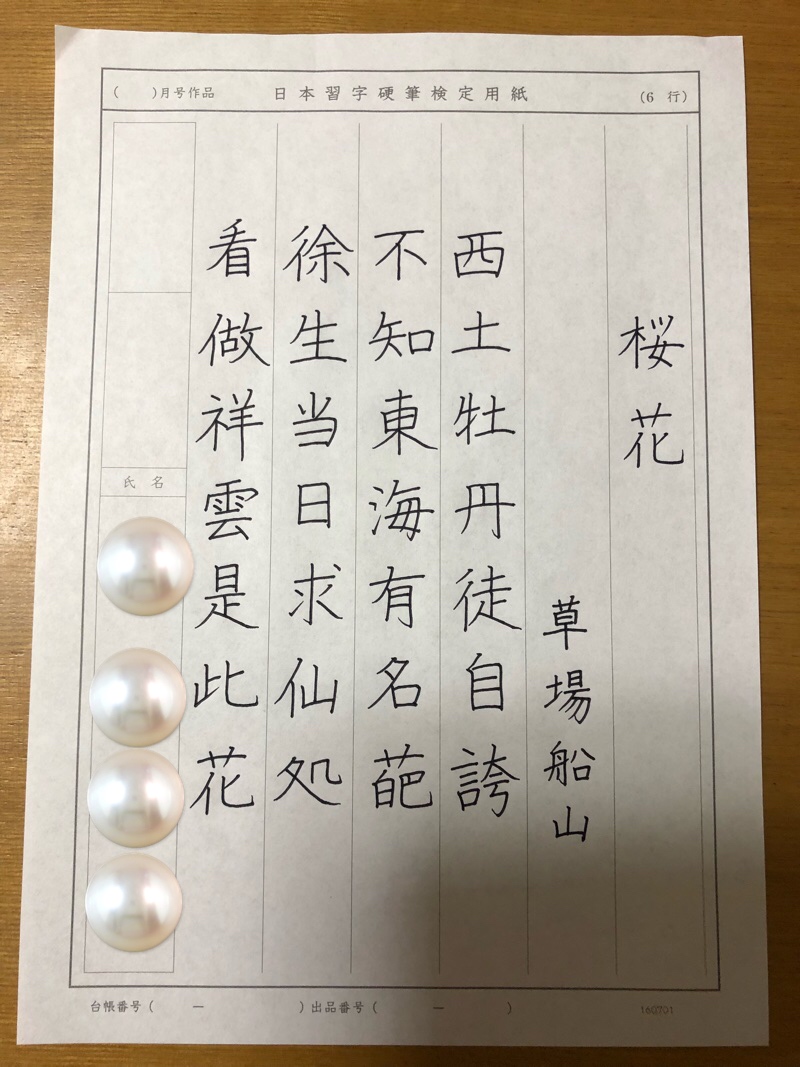 ( )月号作品 日本習字硬筆検定用紙 (6 行)
桜花
草場船山
西土牡丹徒自誇
不知東海有名葩
徐生当日求仙処
看做祥雲是此花
氏名
台帳番号( ー )出品番号( ー )
160701